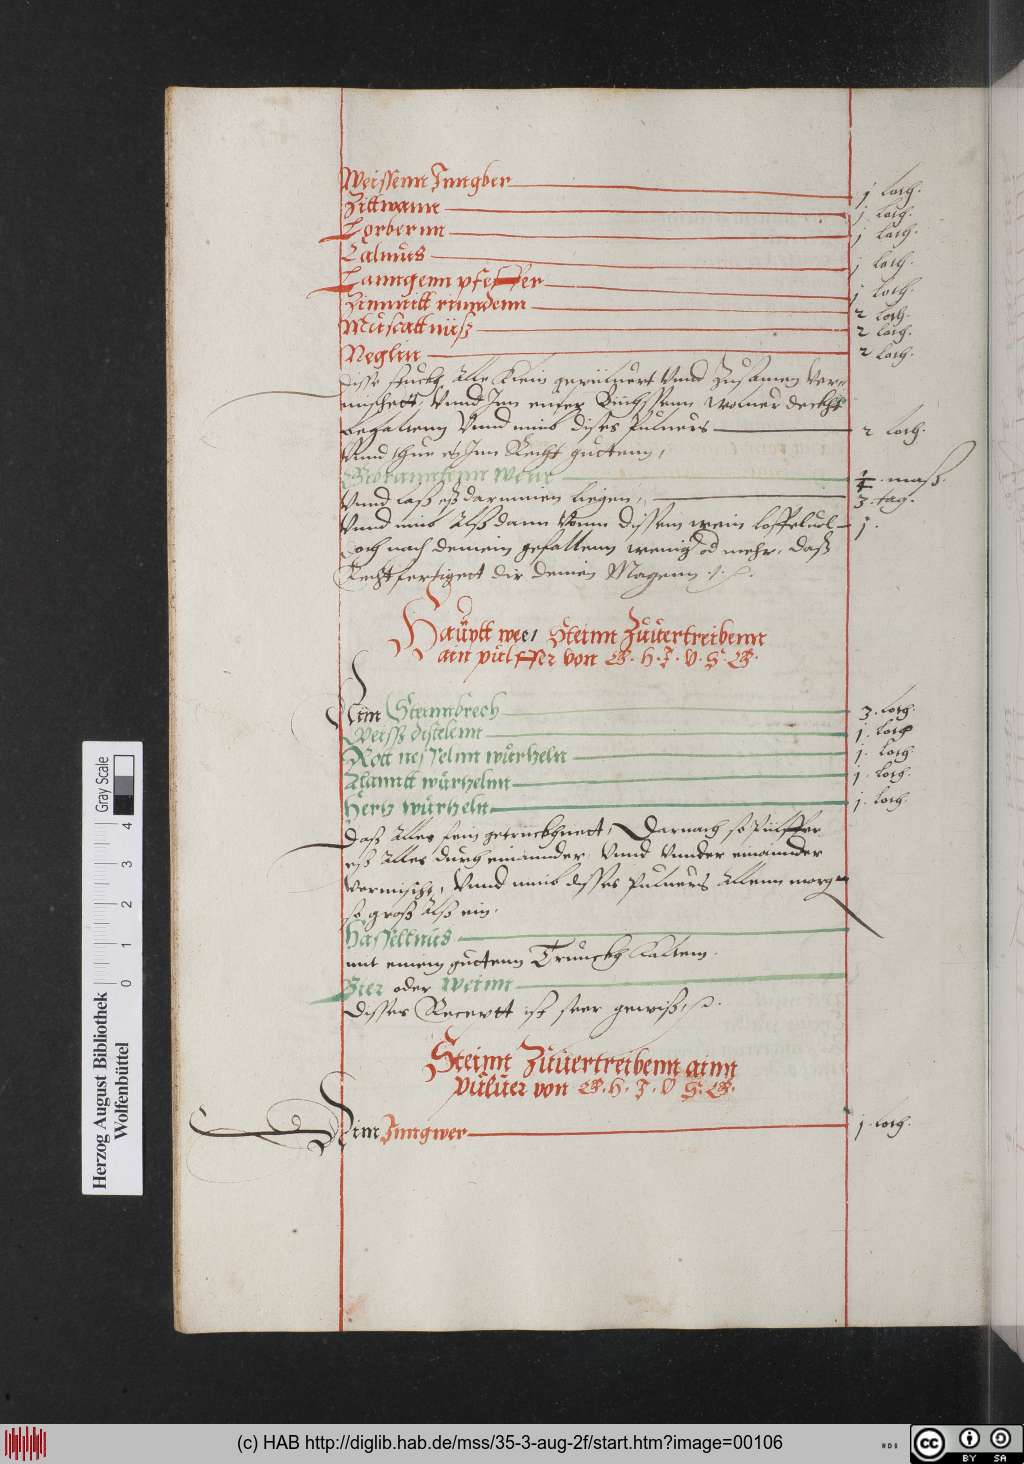 Weissenn Jnngber 1 loth.
Zittwann 1 loth.
Lorbernn 1 loth.
Calmůs 1 loth.
Lanngenn pfeffer 1 loth.
Zimmitt rinndenn 2 loth.
Můscatt nüß 2 loth.
Neglin 2 loth.
disse stuckh Alle klein gepüluert vnnd Zusamen ver=
mischett, Vnnd Jnn einer Büchssenn woluerdeckht
behaltenn Vnnd nimb dises puluers 2 loth.
Vnnd thue es Jnn Recht guttenn,
wein ¼ maß.
Vnnd laß eß darinnen ligen, 3. tag.
Vnnd nimb Alß dann vonn dissem wein loffeluol 1.
doch nach deinem gefallenn wenig od mehr, daß
Rechtfertigett dir deinen Magenn
Haüptt wee, Steinn Zůuertreibenn
ain pulffer von G. H. J. V. S. G.
Nim Steinnbrech 3. loth.
Weiss distelnn 1. loth
Rott nesselnn wůrtzeln 1. loth.
Alanntt wůrtzelnn 1. loth.
Hertz wůrtzeln 1. loth.
Daß Alles fein getrückhnett, Darnach so pulffer
eß Alles durch einannder, Vnnd vnnder einannder
vermischt, Vnnd nimb disses puluers Allenn morgen
so groß Alß ein.
Hassellnus
mit einem guttenn Trunckh kaltem.
Bier oder weinn
disses Receptt ist seer gewiß,
Steinn Zůuertreibenn ainn
půluer von G. H. J. V. S. G.
Nim Jnngwer 1. loth.
Herzog August Bibliothek
Wolfenbüttel
0 1 2 3 4
Gray Scale
(c) HAB http://diglib.hab.de/mss/35-3-aug-2f/start.htm?image=00106
cc BY SA